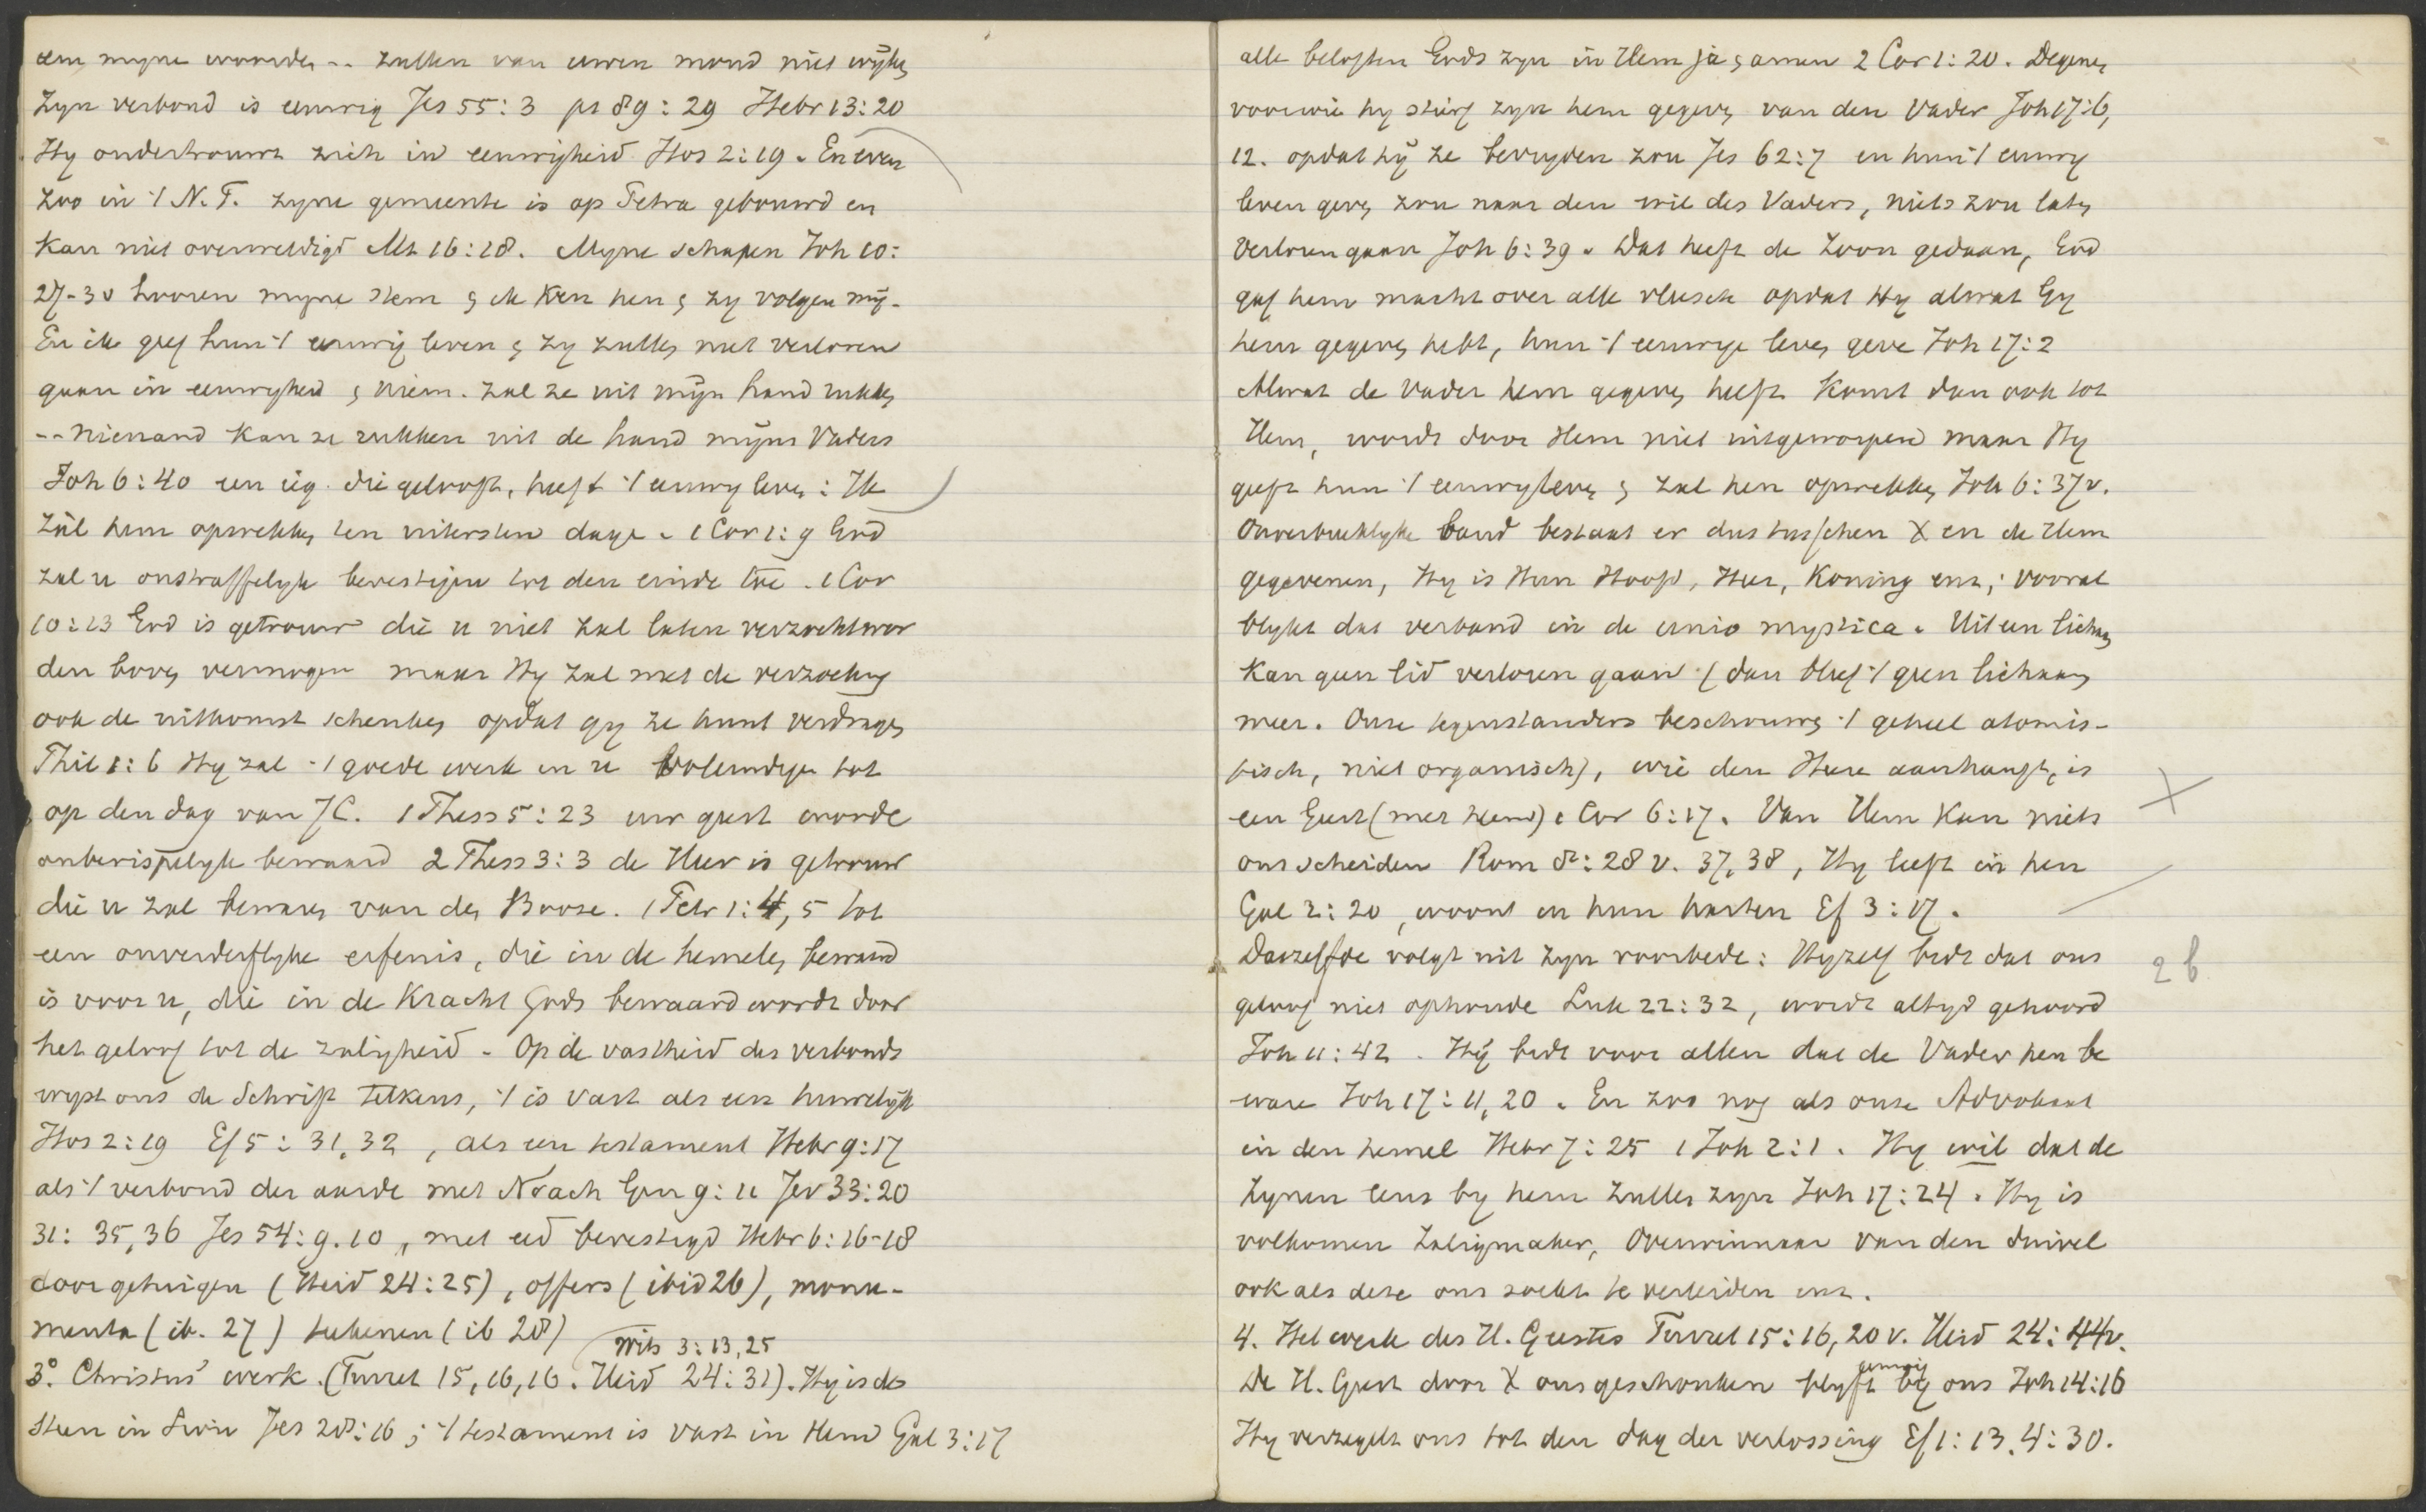 en myne woorden -- zullen van uwen mond niet wijken
Zyn verbond is eeuwig Jes 55:3 ps 89:29 Hebr 13:20
Hy ondertrouwt zich in eeuwigheid Hos 2:19. En even
zoo in 't N.T. zyne gemeente is op Petra gebouwd en
kan niet overweldigd Mt 16:18. Myne schapen Joh 10:
27-30 hooren myne stem & ik ken hen & zy volgen mij-
En ik geef hun 't eeuwig leven & zy zullen niet verloren
gaan in eeuwigheid & niem. zal ze uit mijn hand rukken
-- niemand kan ze rukken uit de hand mijns Vaders
Joh 6:40 een ieg. die gelooft, heeft 't eeuwig leven: Ik
zal hem opwekken ten uitersten dage. 1 Cor 1:9 God
zal u onstraffelyk bevestigen tot den einde toe. 1 Cor
10:13 God is getrouw die u niet zal laten verzocht wor
den boven vermogen maar Hy zal met de verzoeking
ook de uitkomst schenken opdat gy ze kunt verdragen
Phil 1:6 Hy zal 't goede werk in u voleindigen tot
op den dag van J C. 1 Thess 5:23 uw geest worde
onberispelyk bewaard 2 Thess 3:3 de Heer is getrouw
die u zal bewaren van den Booze. 1 Petr 1:4,5 tot
een onverderflyke erfenis, die in de hemelen bewaard
is voor u, die in de Kracht Gods bewaard wordt door
het geloof tot de zaligheid. Op de vastheid des verbonds
wyst ons de Schrift telkens, 't is vast als een huwelijk
Hos 2:19 Ef 5:31,32, als een testament Hebr 9:17
als 't verbond der aarde met Noach Gen 9:11 Jer 33:20
31:35,36 Jes 54:9.10, met eed bevestigd Hebr 6:16-18
door getuigen (Heid 24:25), offers (ibid 26), monu-
menta (ib. 27) teekenen (ib 28)
Wits 3:13,25
3° Christus' werk. (Turret 15,16,16. Heid 24:31). Hy is de
Steen in Sion Jes 28:16; 't testament is vast in Hem Gal 3:17
alle beloften Gods zyn in Hem ja & amen 2 Cor 1:20. Degenen
voor wie hy stierf zyn hem gegeven van den Vader Joh 17:6,
12. opdat hy ze bevryden zou Jes 62:7 en hun 't eeuwig
leven geven zou naar den wil des Vaders, niets zou laten
verloren gaan Joh 6:39. Dat heeft de Zoon gedaan, God
gaf hem macht over alle vleesch opdat Hy alwat Gy
hem gegeven hebt, hun 't eeuwige leven geve Joh 17:2
Alwat de Vader hem gegeven heeft komt dan ook tot
Hem, wordt door Hem niet uitgeworpen maar Hy
geeft hun 't eeuwig leven & zal hen opwekken Joh 6:37v.
Onverbreeklyke band bestaat er dus tusschen X en de Hem
gegevenen, Hy is Hun Hoofd, Heer, Koning enz; vooral
blykt dat verband in de unio mystica. Uit een lichaam
kan geen lid verloren gaan (dan bleef 't geen lichaam
meer. Onze tegenstanders beschouwen 't geheel atomis-
tisch, niet organisch), wie den Heere aanhangt, is
een Geest (met hem) 1 Cor 6:17. Van Hem kan niets
ons scheiden Rom 8:28 v. 37,38, Hy leeft in hen
Gal 2:20, woont in hun harten Ef 3:17.
Datzelfde volgt uit zyn voorbede: Hyzelf bidt dat ons
2 b
geloof niet ophoude Luk 22:32, wordt altyd gehoord
Joh 11:42. Hij bidt voor allen dat de Vader hen be
ware Joh 17:11,20. En zoo nog als onze Advokaat
in den hemel Hebr 7:25 1 Joh 2:1. Hy wil dat de
zynen eens by hem zullen zyn Joh 17:24. Hy is
volkomen Zaligmaker, Overwinnaar van den duivel
ook als deze ons zoekt te verleiden enz.
4. Het werk des H. Geestes Turret 15:16,20 v. Heid 24:44v.
eeuwig
De H. Geest door X ons geschonken blyft by ons Joh 14:16
Hy verzegelt ons tot den dag der verlossing Ef 1:13,4:30.